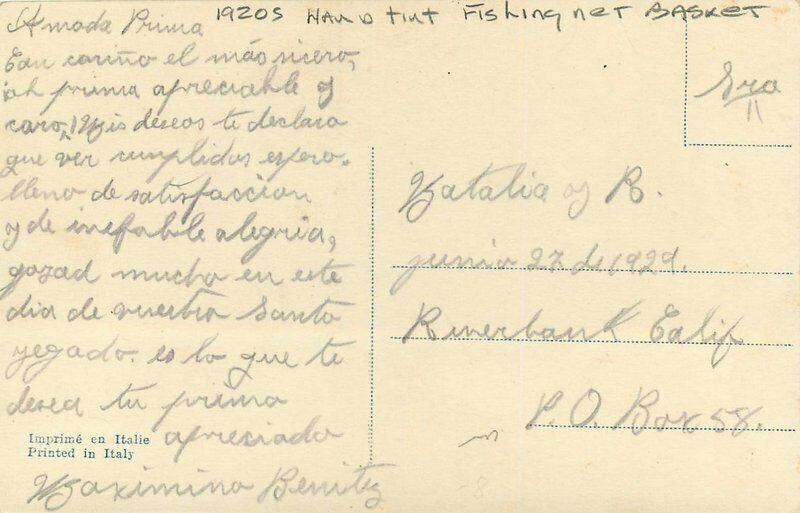 1920s Hand tint Fishing net Basket
Amada Prima
Con cariño el más sicero,
oh prima apreciable y
caro, Mis deseos te declaro
que ver cumplidos espero.
lleno de satisfaccion
y de inefable alegria,
gozad mucho en este
dia de vuestro Santo
yegado. es lo que te
desea tu primo
apreciado
Maximino Benitez
Imprimé en Italie
Printed in Italy
Sra
Natalia y R.
junio 27 de 1929.
Riverbank Calif
P.O. Box 58.